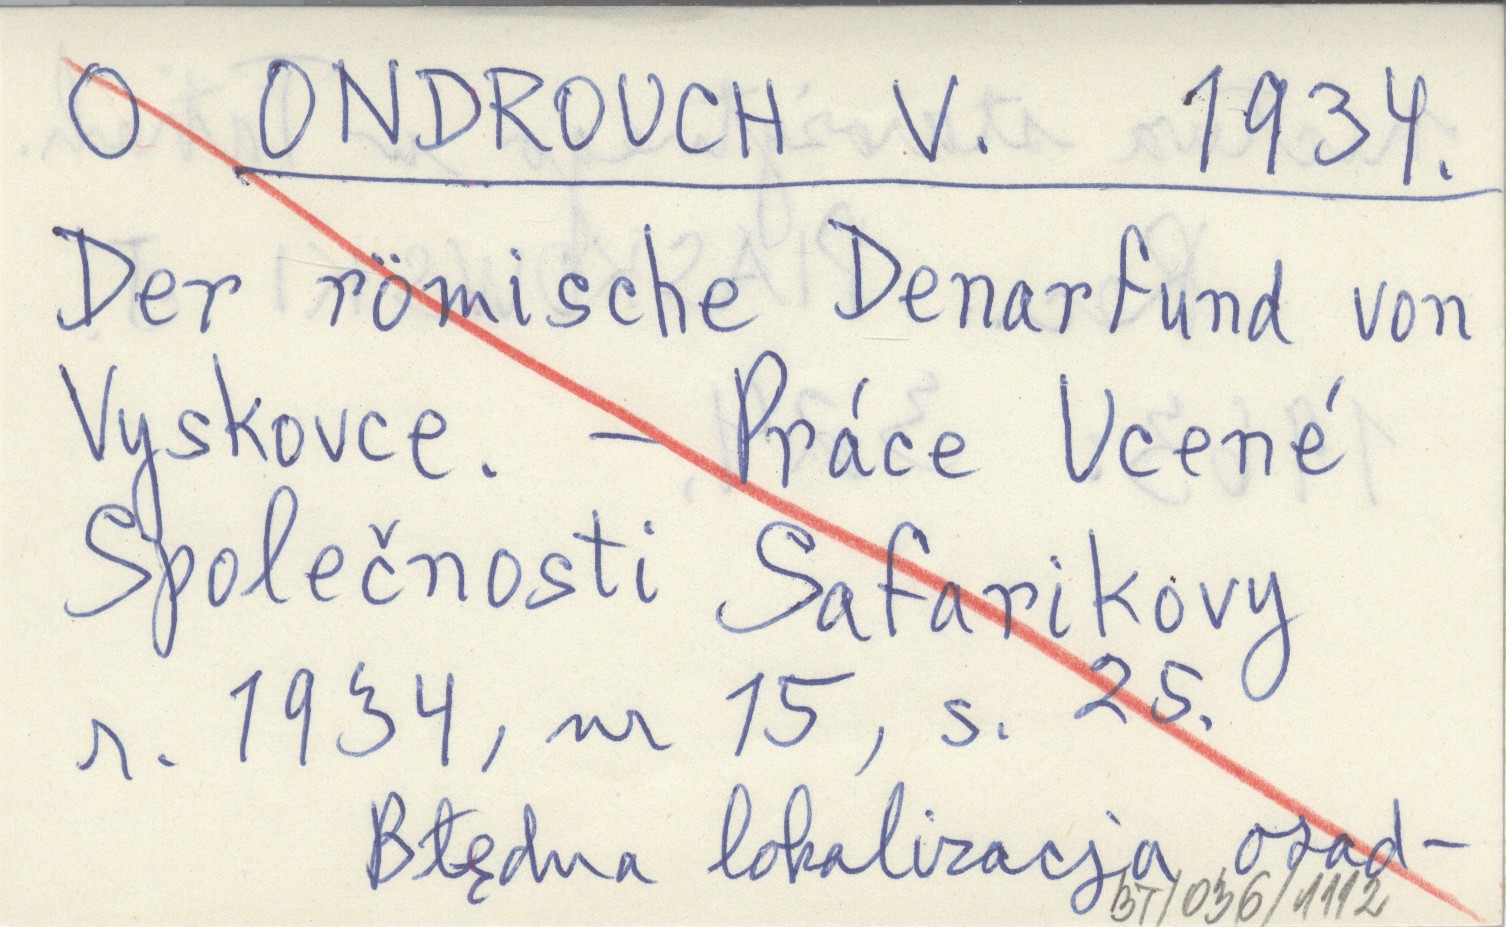 O ONDROUCH V. 1934.
Der römische Denarfund von
Vyskovce. – Práce Ucené
Společnosti Safarikovy
r. 1934, nr 15, s. 25.
Błędna lokalizacja osad-
BT/036/1112